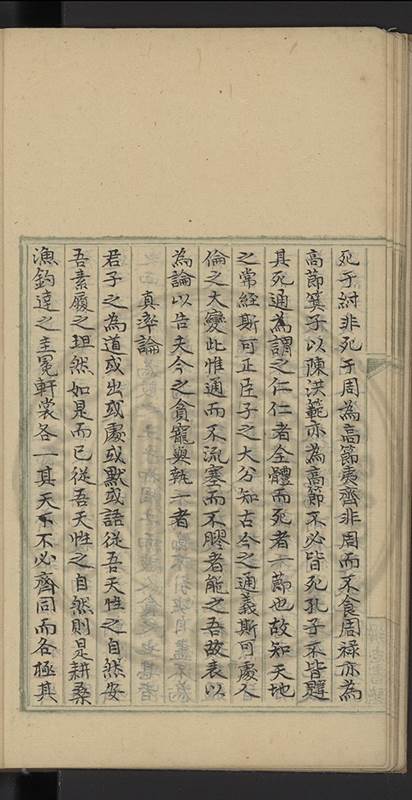 死于紂非死于周為高節夷齊非周而不食周祿亦為
高節箕子以陳洪範亦為高節不必皆死孔子不皆題
其死通為謂之仁仁者全體而死者一節也故知天地
之常經斯可正臣子之大分知古今之通義斯可處人
倫之大變此惟通而不流塞而不膠者能之吾故表以
為論以告夫今之貪寵與執一者
真率論
君子之為道或出或處或默或語從吾天性之自然安
吾素履之坦然如是而已從吾天性之自然則是耕桑
漁釣達之圭冕軒裳各一其天下不必齊同而各極其